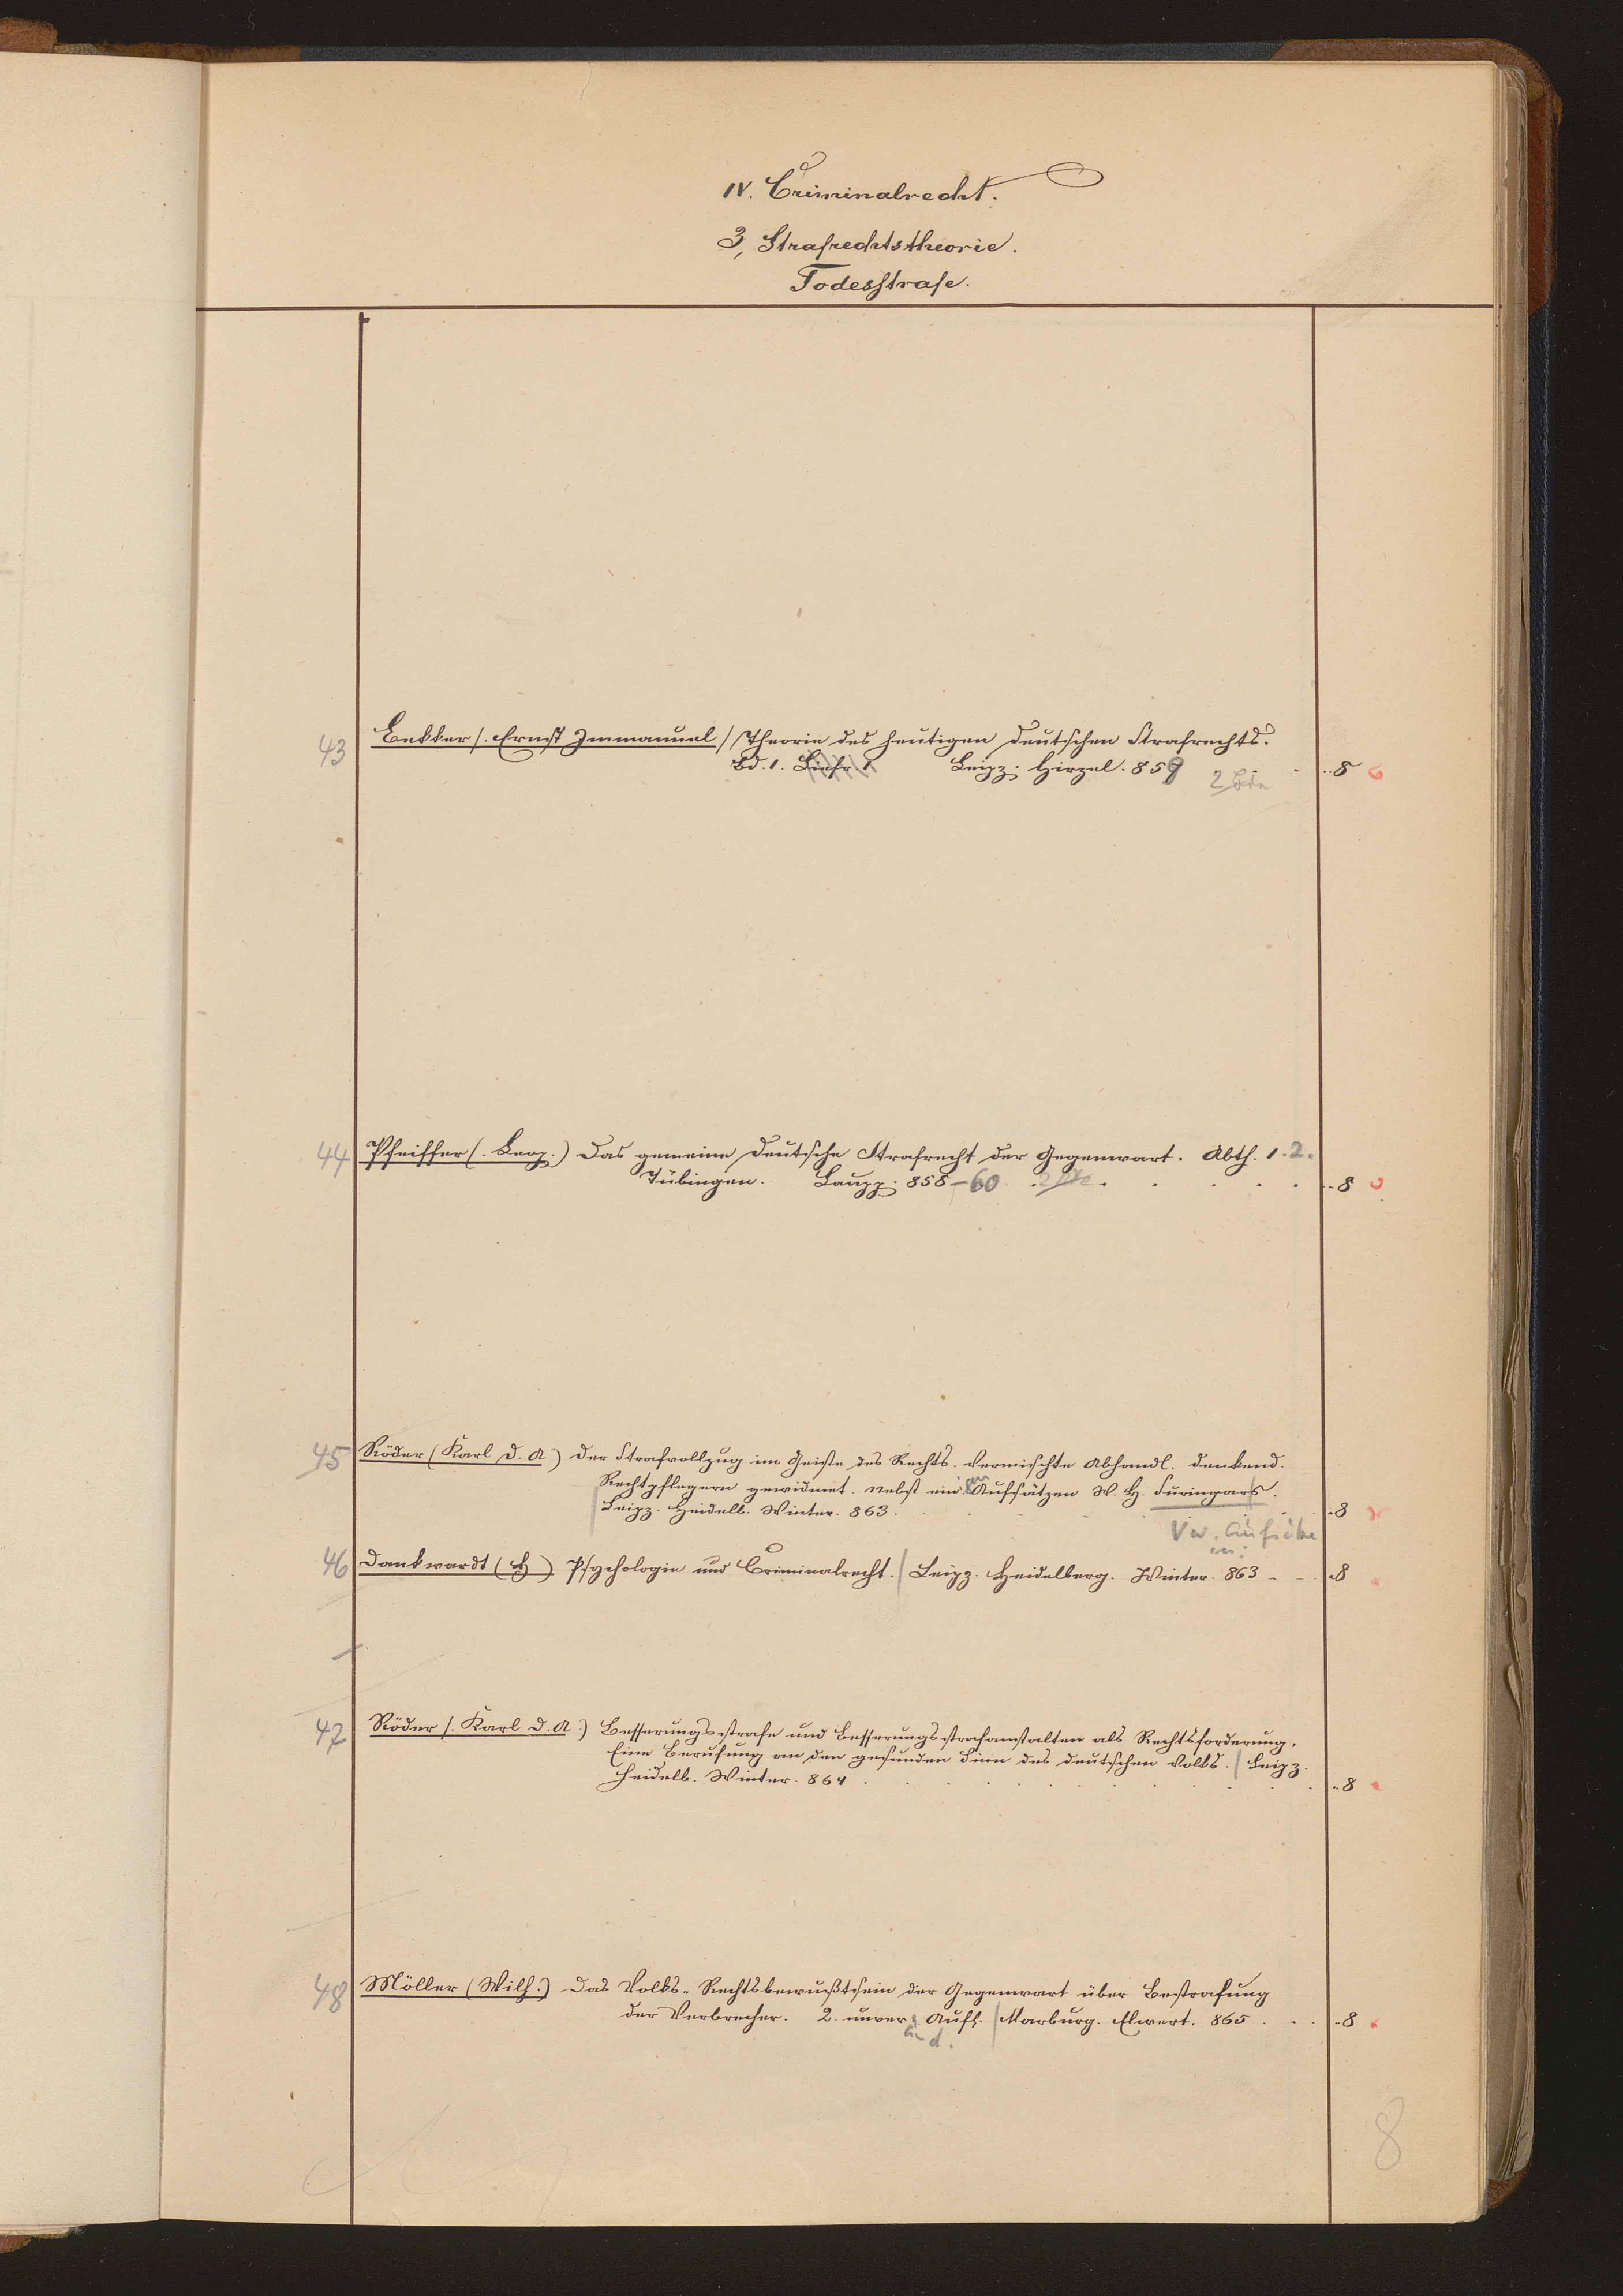 IV. Criminalrecht.
3, Strafrechtstheorie.
Todesstrafe.
43 Bekker (. Ernst Immanuel) Theorie des heutigen deutschen Strafrechts.
Bd. 1. Liefr. 1 Leipz. Hirzel. 859 2 8
44 Pfeiffer (. Leop.) Das gemeine deutsche Strafrecht der Gegenwart. Abth. 1. 2.
Tübingen. Laupp. 858-60 8
45 Röder (Karl D. A) Der Strafvollzug im Geiste des Rechts. Vermischte Abhandl. denkend.
Rechtpflegern gewidmet. Nebst ein Aufsätzen W. H. Suringars.
Leipz. Heidelb. Winter. 863. 8
46 Dankwardt (H) Psychologie und Criminalrecht. Leipz. Heidelberg. Winter. 863 - - 8
47 Röder (. Karl D. A.) Besserungsstrafe und Besserungsstrafanstalten als Rechtsforderung.
Eine Berufung an den gesunden Sinn des deutschen Volks. Leipz.
Heidelb. Winter. 864 8
48 Möller (Wilh.) Das Volks-Rechtsbewußtsein der Gegenwart über Bestrafung
der Verbrecher. 2. unver. Aufl. Marburg. Elwert. 865 8
änd.
8